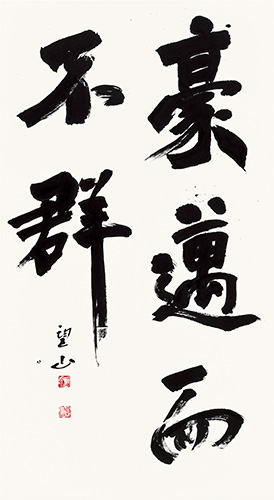 豪邁而
不群
望山